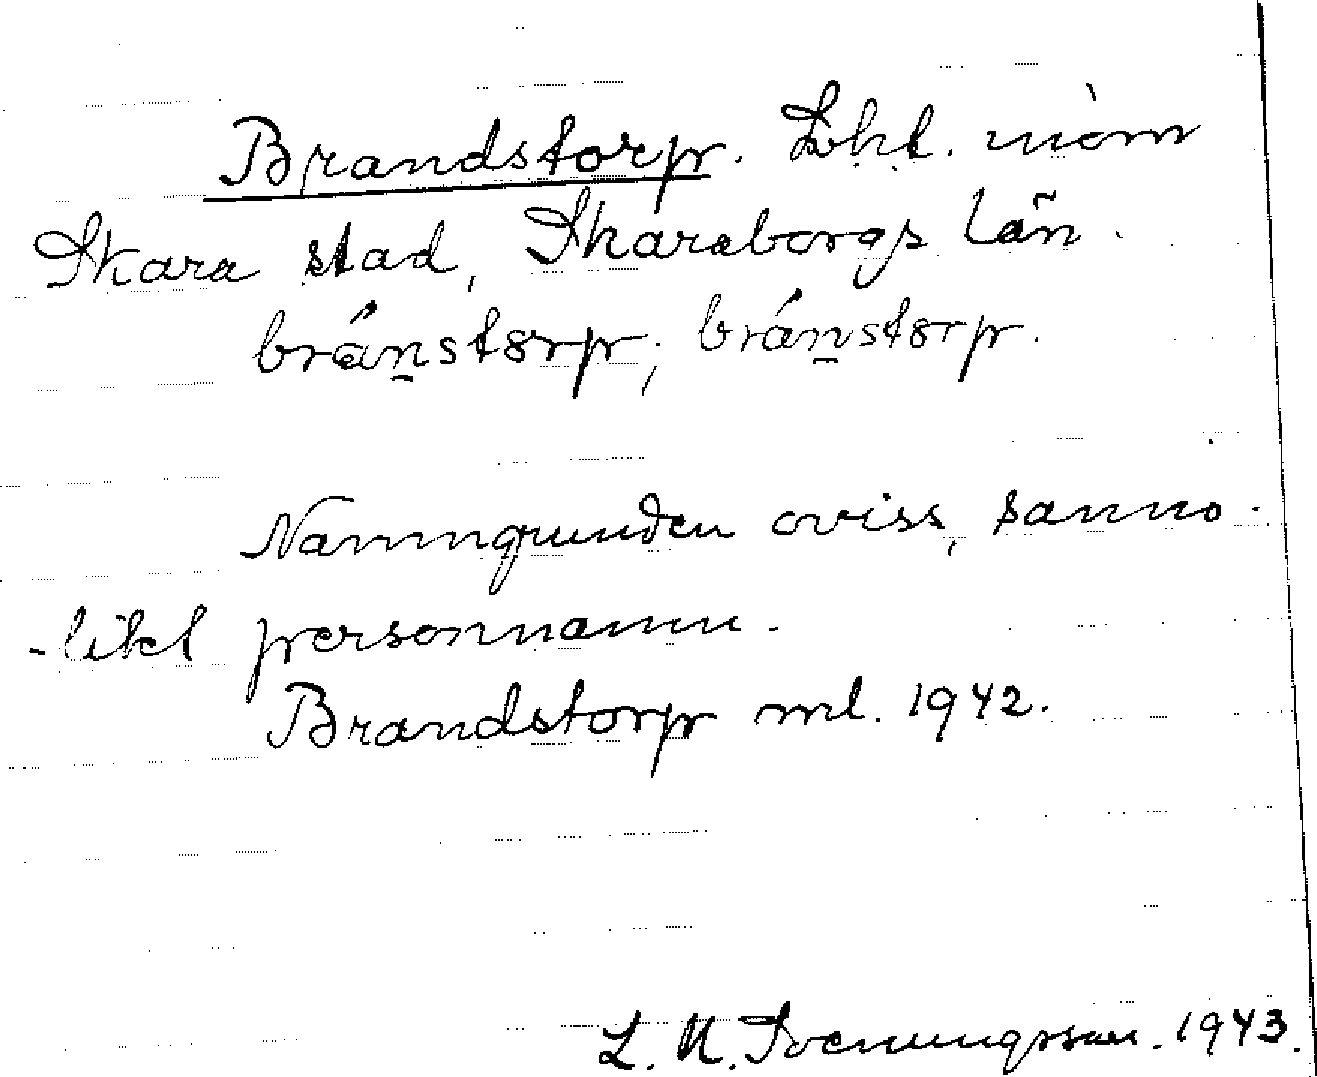 Brandstorp. Lht. inom
Skara stad, Skaraborgs län.
brán̠størp; brán̠størp.
Namngrunden oviss, sanno-
-likt personnamn.
Brandstorp ml. 1942.
L. N. Svenungsson. 1943.